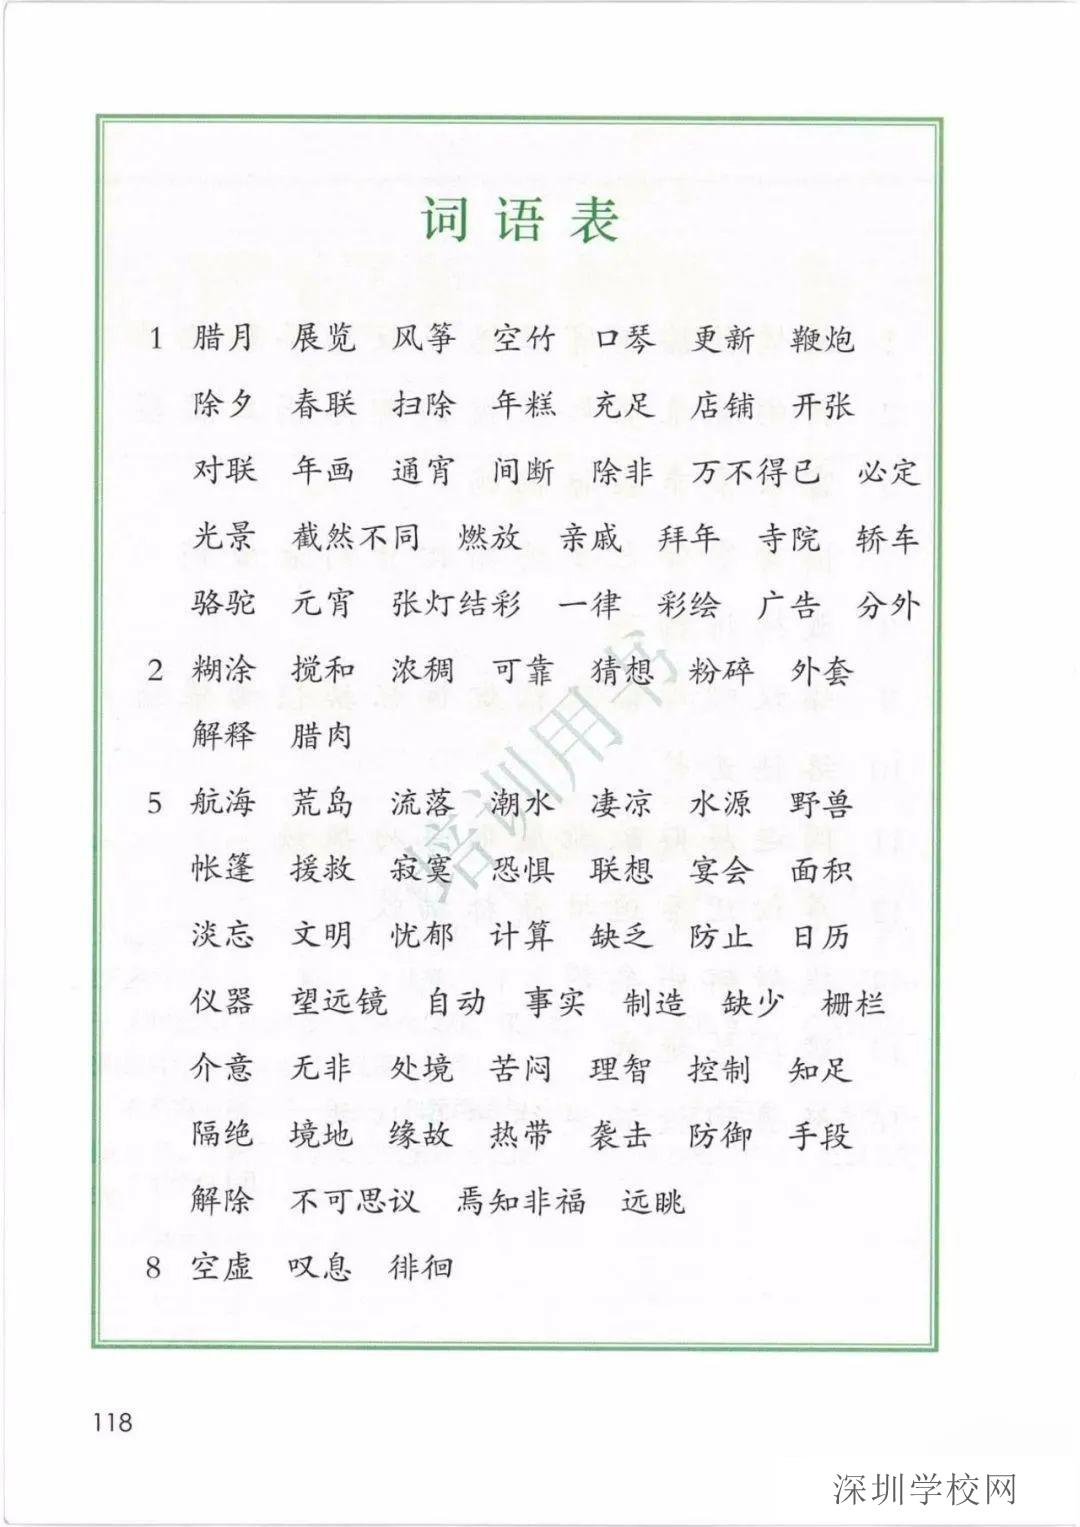 词语表
1 腊月 展览 风筝 空竹 口琴 更新 鞭炮
除夕 春联 扫除 年糕 充足 店铺 开张
对联 年画 通宵 间断 除非 万不得已 必定
光景 截然不同 燃放 亲戚 拜年 寺院 轿车
骆驼 元宵 张灯结彩 一律 彩绘 广告 分外
2 糊涂 搅和 浓稠 可靠 猜想 粉碎 外套
解释 腊肉
5 航海 荒岛 流落 潮水 凄凉 水源 野兽
帐篷 援救 寂寞 恐惧 联想 宴会 面积
淡忘 文明 忧郁 计算 缺乏 防止 日历
仪器 望远镜 自动 事实 制造 缺少 栅栏
介意 无非 处境 苦闷 理智 控制 知足
隔绝 境地 缘故 热带 袭击 防御 手段
解除 不可思议 焉知非福 远眺
8 空虚 叹息 徘徊
培训用书
118
深圳学校网